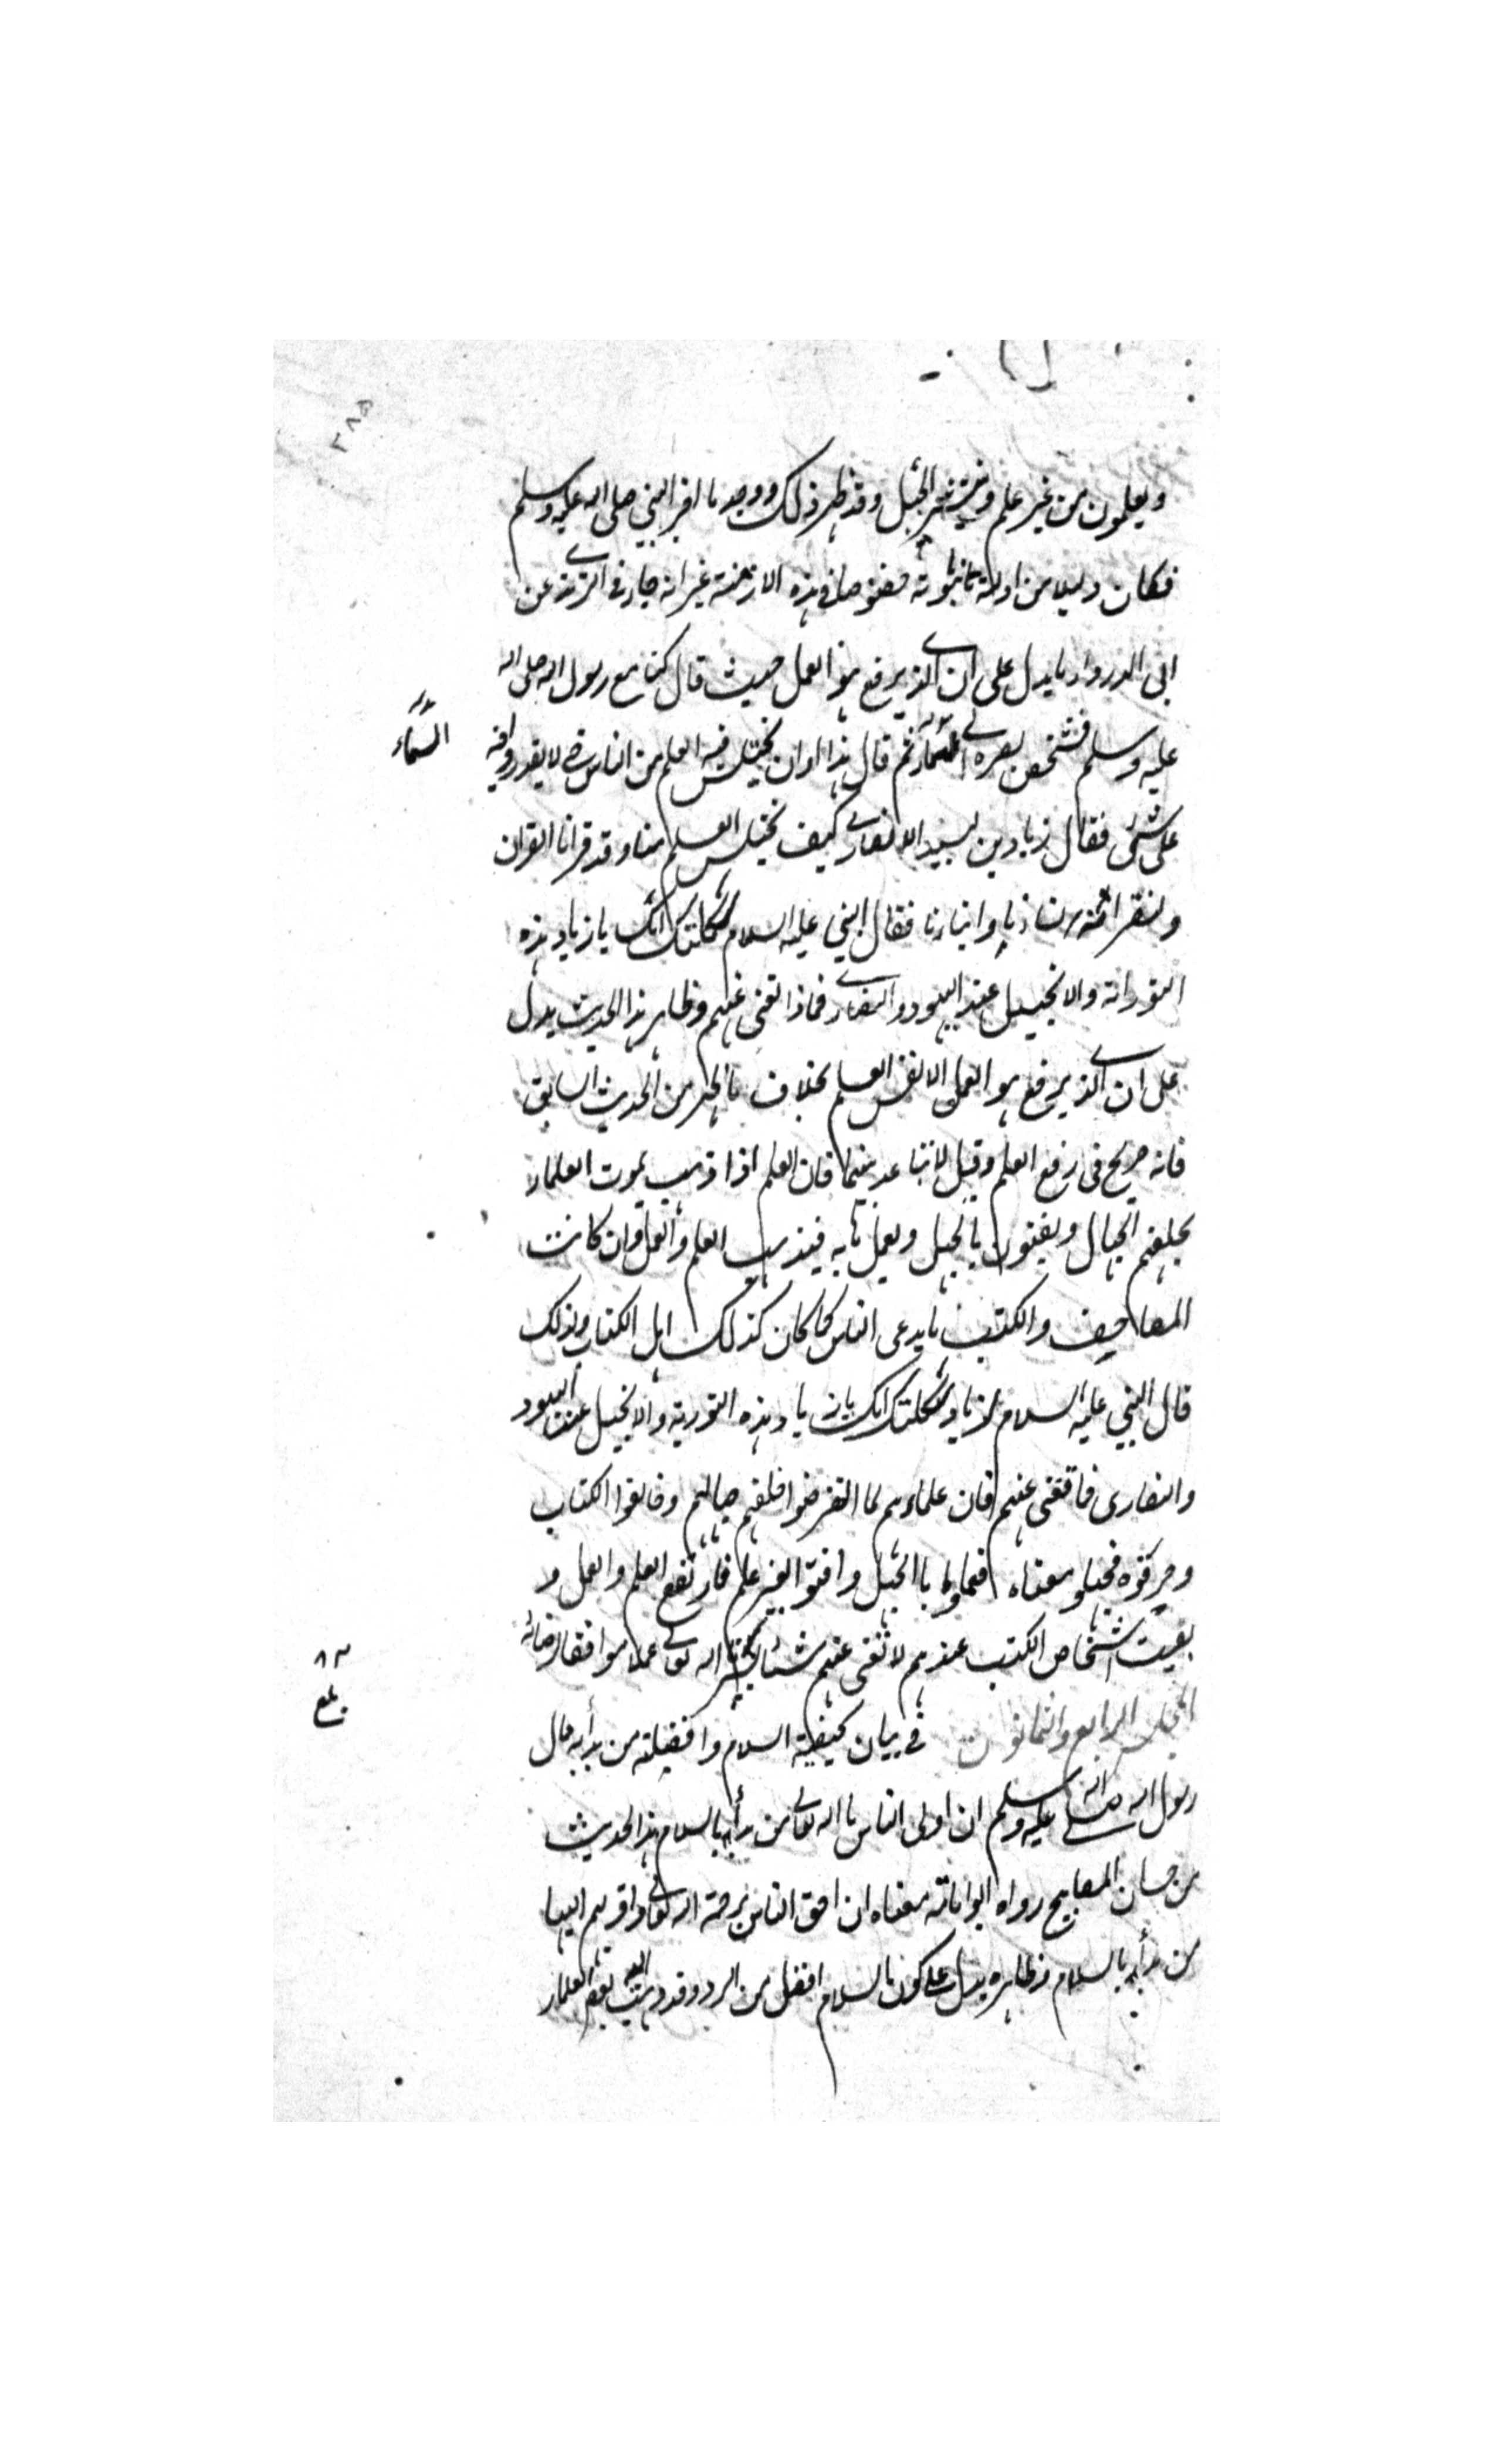 ٣٨٥
ويعلمون من غير علم وينتشر الجهل وقد ظهر ذلك ووجد ما اخبر النبي صلى الله عليه وسلم
فكان دليلا من ادلة نبوته خصوصا في هذه الازمنة غير انه جاء في الترمذي عن
ابى الدرداء ما يدل على ان الذي يرفع هو العمل حيث قال كنا مع رسول الله صلى الله
عليه وسلم فشخص بصره الى السماء ثم قال هذا اوان يختلس فيه العلم من الناس حتى لا يقدروا فيه
السماء
على شئ فقال زياد بن لبيد الانصاري كيف يختلس العلم منا وقد قرانا القران
ولنقرائنه ابنائنا فقال النبي عليه السلام ثكلتك امك يا زياد هذه
التوراة والانجيل عند اليهود والنصارى فماذا تغنى عنهم وظاهر هذا الحديث يدل
على ان الذي يرفع هو العمل لا نفس العلم بخلاف ما ظهر من الحديث السابق
فانه صريح فى رفع العلم وقيل لا تباعد بينهما فان العلم اذا ذهب بموت العلماء
يخلفهم الجهال ويفتون بالجهل ويعمل به فيذهب العلم والعمل وان كانت
المصاحف والكتب بايدى الناس كما كان كذلك اهل الكتاب ولذلك
قال النبي عليه السلام لزياد ثكلتك امك يا زياد هذه التورية والانجيل عند اليهود
والنصارى فما تغنى عنهم فان علماءهم لما انقرضوا خلفهم جهالهم وخالفوا الكتاب
وحرفوه فجهلو معناه فعملوا بالجهل وافتوا بغير علم فارتفع العلم والعمل و
بقيت اشخاص الكتب عندهم لا تغنى عنهم شئا يسر الله تعالى عملا موافقا لرضائه
المجلس الرابع والثمانون في بيان كيفية السلام وافضيلته من بدأ به قال
٨٤
بلغ
رسول الله صلى الله عليه وسلم ان اولى الناس بالله تعالى من بدأ بالسلام هذا الحديث
من حسان المصابيح رواه ابو امامة معناه ان احق الناس برحمة الله تعالى واقربهم اليها
من بدأ بالسلام وظاهره يدل على كون السلام افضل من الرد وقد ذهب اليه بعض العلماء